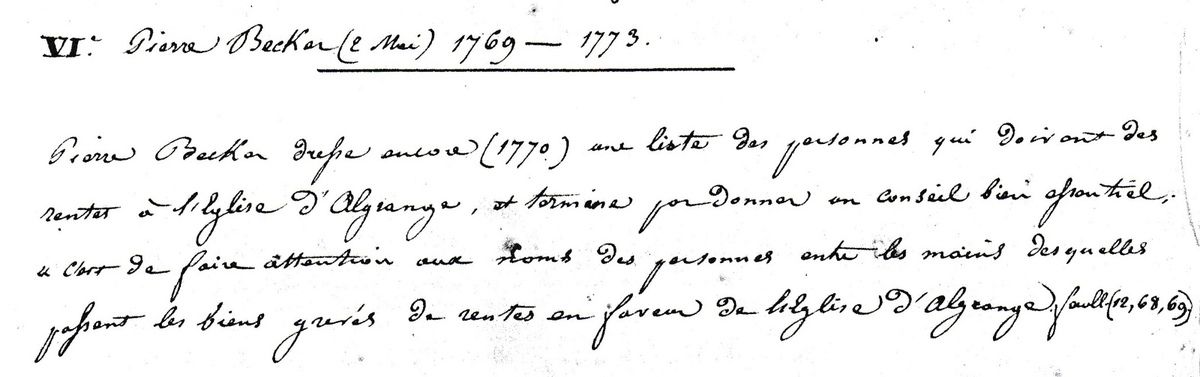 VIe Pierre Becker (2 Mai) 1769 — 1773.
Pierre Becker dresse encore (1770) une liste des personnes qui doivent des
rentes à l'Eglise d'Algrange, et termine par donner un conseil bien essentiel,
"c'est de faire attention aux noms des personnes entre les mains desquelles
passent les biens grevés de rentes en faveur de l'Eglise d'Algrange. (12, 68, 69)